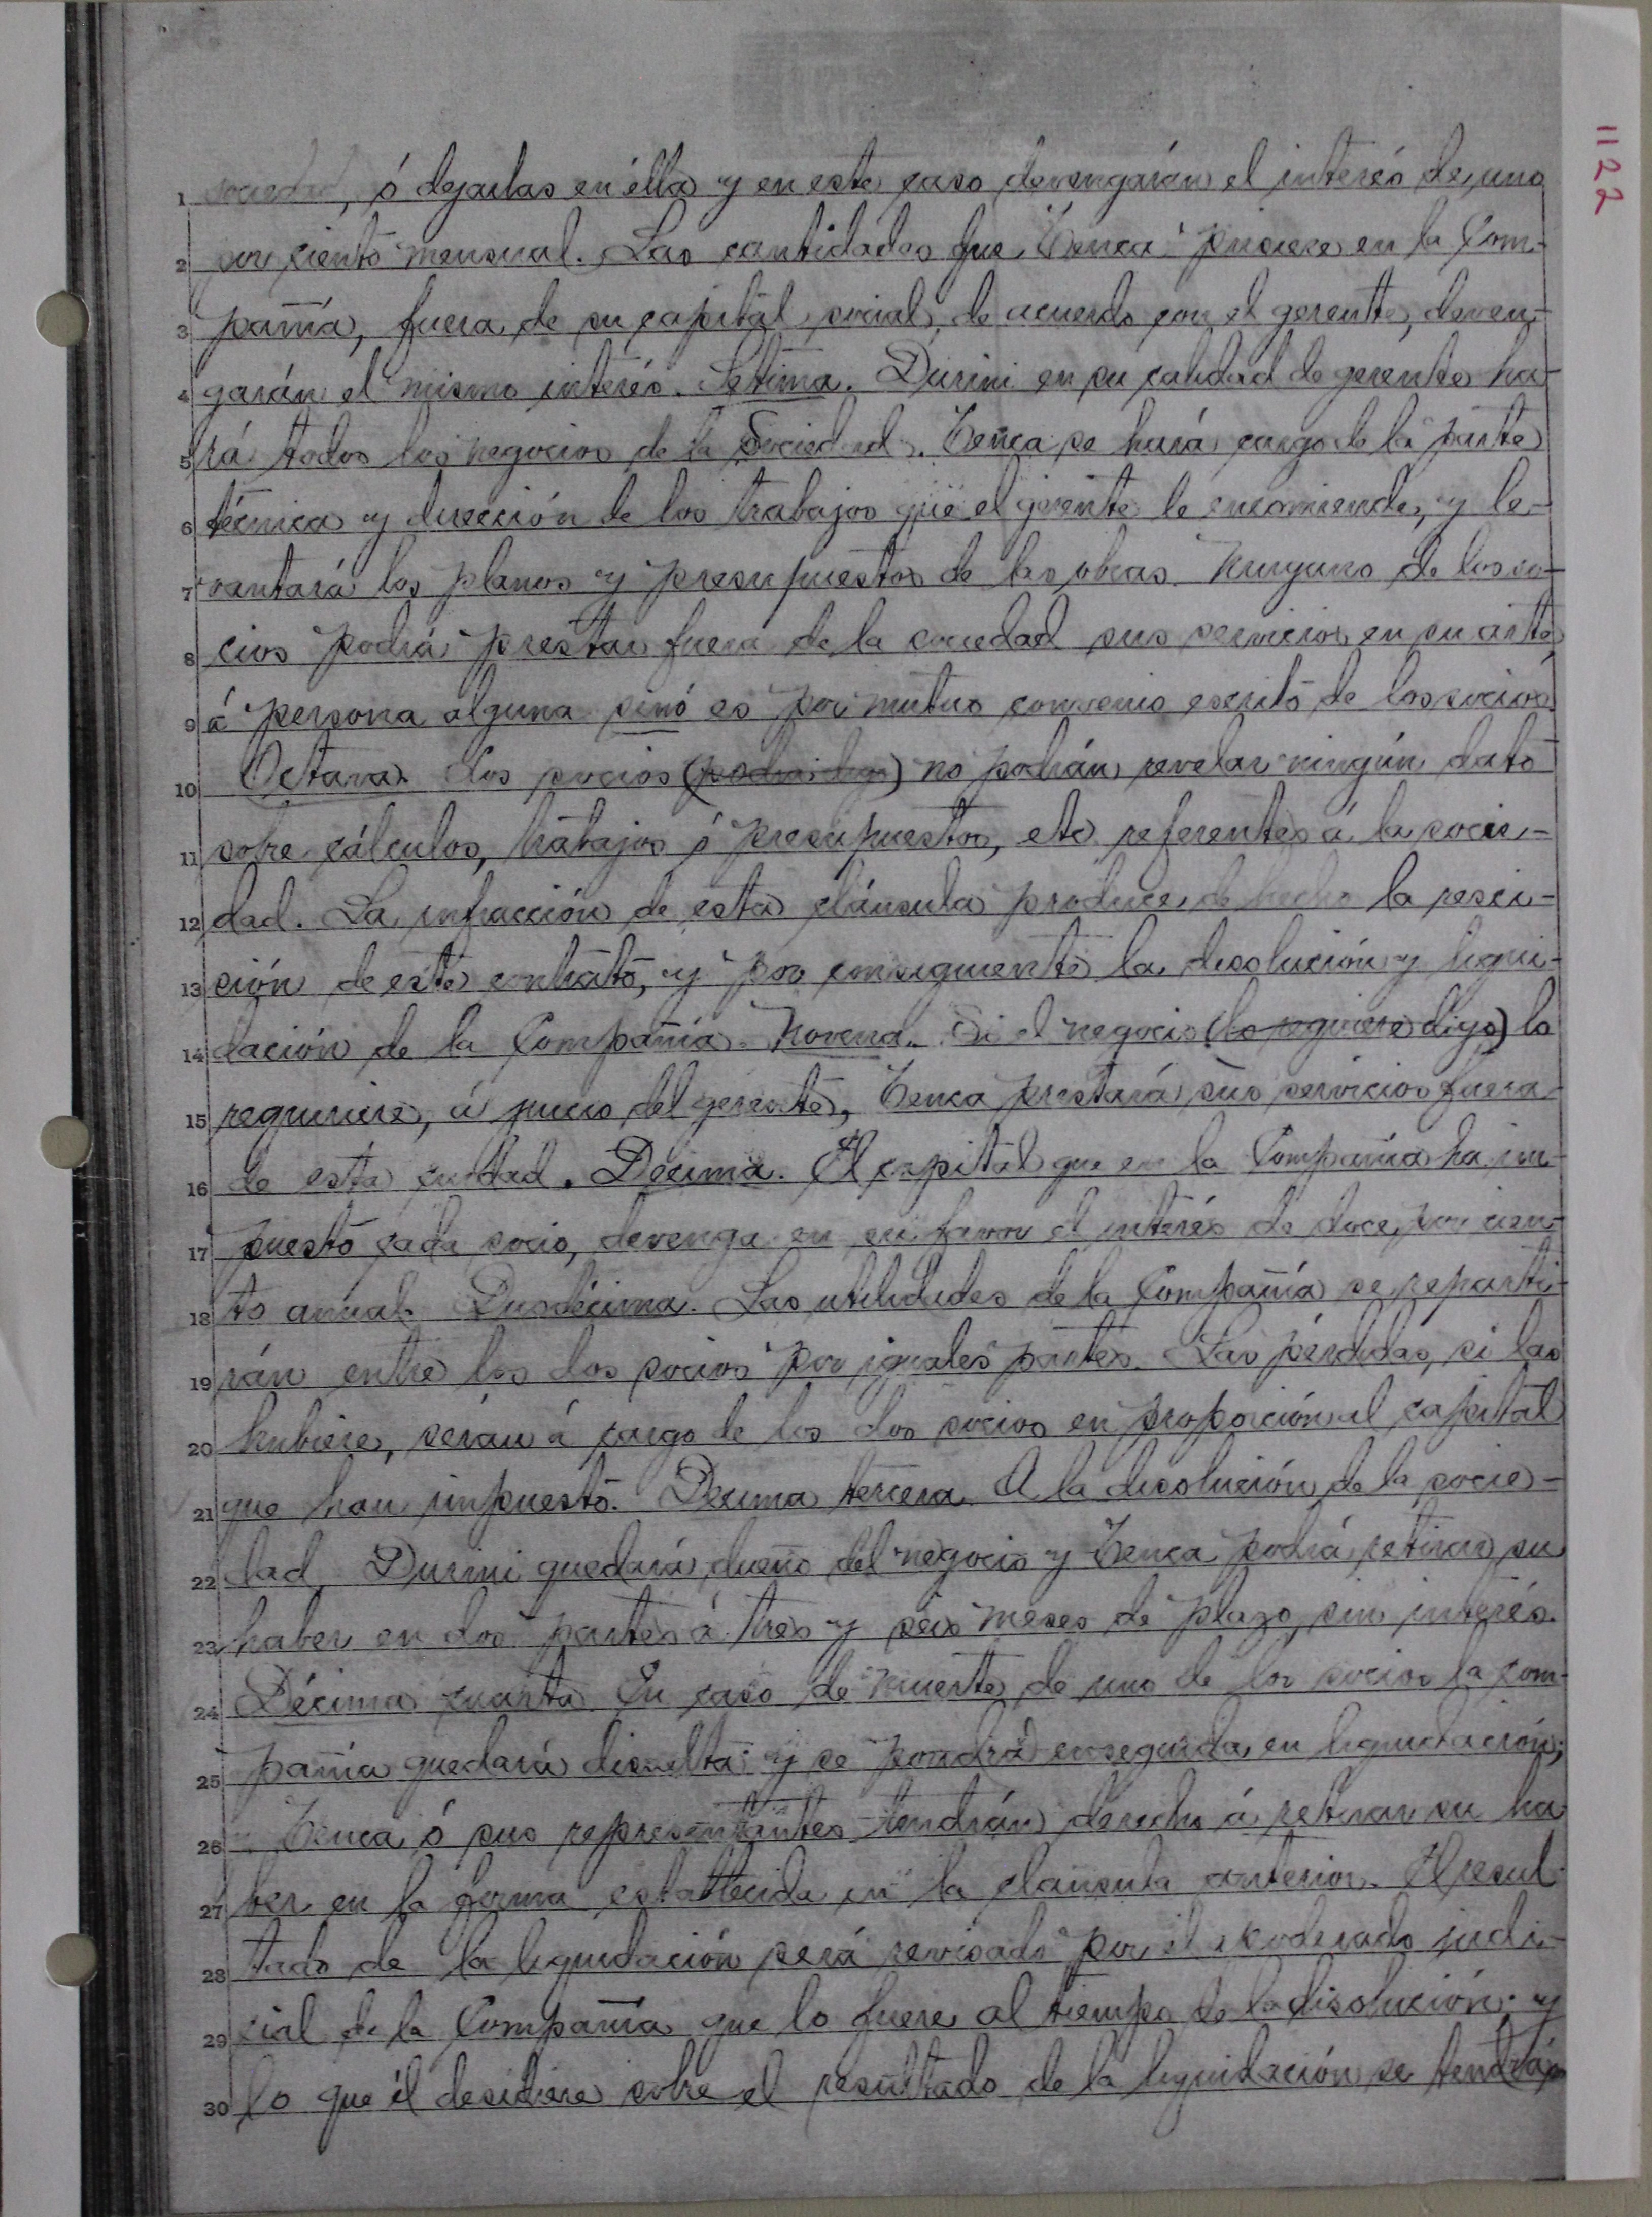 1122
1 sociedad, ó dejarlas en élla y en este caso devengarán el interés de uno
2 por ciento mensual. Las cantidades que Tenca pusiere en la Com-
3 pañía, fuera de su capital social, de acuerdo con el gerente, deven-
4 garán el mismo interés. Setima. Durini en su calidad de gerente ha-
5 rá todos los negocios de la Sociedad. Tenca se hará cargo de la parte
6 técnica y dirección de los trabajos que el gerente le encomiende, y le-
7 vantará los planos y presupuestos de las obras. Ninguno de los so-
8 cios podrá prestar fuera de la sociedad sus servicios en su arte
9 á persona alguna sinó es por mutuo convenio escrito de los socios.
10 Octava. Los socios (podrá digo) no podrán revelar ningún dato
11 sobre cálculos, trabajos ó presupuestos, etc referentes á la socie-
12 dad. La infracción de esta cláusula produce de hecho la resci-
13 ción de este contrato, y por consiguiente la disolución y liqui-
14 dación de la Compañía. Novena. Si el negocio (lo requiere digo) lo
15 requiriere, á juicio del gerente, Tenca prestará sus servicios fuera
16 de esta ciudad. Decima. El capital que en la Compañía ha im-
17 puesto cada socio, devenga en su favor el interés de doce por cien-
18 to anual. Duodécima. Las utilidades de la Compañía se reparti-
19 rán entre los dos socios por iguales partes. Las pérdidas, si las
20 hubiere, serán á cargo de los dos socios en proporción al capital
21 que han impuesto. Decima tercera. A la disolución de la socie-
22 dad, Durini quedará dueño del negocio y Tenca podrá retirar su
23 haber en dos partes á tres y seis meses de plazo, sin interés.
24 Décima cuarta. En caso de muerte de uno de los socios la com-
25 pañía quedará disuelta y se pondrá enseguida en liquidación;
26 Tenca ó sus representantes tendrán derecho á retirar su ha
27 ber en la forma establecida en la cláusula anterior. El resul-
28 tado de la liquidación será revisado por el apoderado judi-
29 cial de la Compañía que lo fuere al tiempo de la disolución; y
30 lo que él desidiere sobre el resultado de la liquidación se tendrá